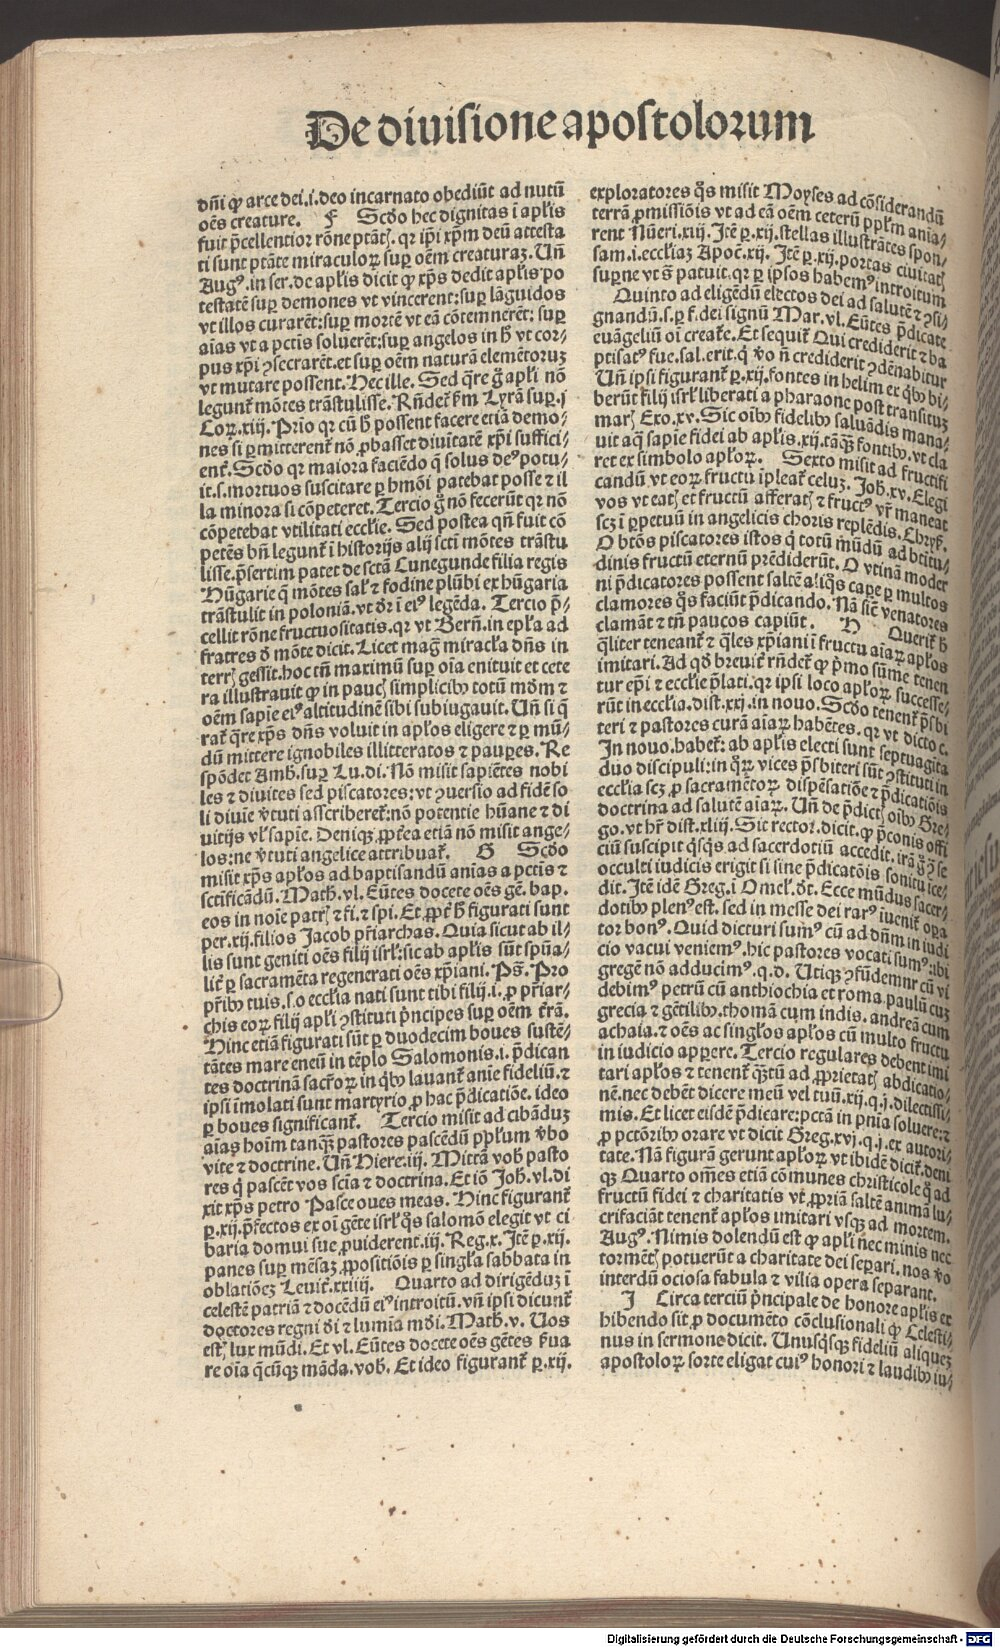 De diuisione apostolorum
dñi ꝙ arce dei.i.deo incarnato obediũt ad nutũ
oẽs creature. F Scđo hec dignitas ĩ apl̃is
fuit p̃cellentior rõne ptãtꝭ. qꝛ ip̃i xp̃m deũ attesta
ti sunt ptãte miraculoꝝ suꝑ oẽm creaturaꝫ. Vñ
Augꝰ. in ser. de apl̃is dicit ꝙ xp̃s dedit apl̃is po
testatẽ suꝑ demones vt vincerent: suꝑ lãguidos
vt illos curarẽt: suꝑ mortẽ vt eã cõtemnerẽt: suꝑ
aĩas vt a pctis soluerẽt: suꝑ angelos in h̃ vt cor-
pus xp̃i ꝯsecrarẽt. et suꝑ oẽm naturã elemẽtoruꝫ
vt mutare possent. Hec ille. Sed q̃re g̃ apl̃i nõ
legunt̃ mõtes trãstulisse. Rñdet̃ ẜm Lyrã suꝑ .j
Coꝝ. xiij. Prĩo qꝛ cũ h̃ possent facere etiã demo-
nes si ꝑmitterent̃ nõ ꝓbasset diuĩtatẽ xp̃i suffici-
ent̃. Scđo qꝛ maiora faciẽdo q̃ solus deꝰ potu-
it.s.mortuos suscitare ꝑ hmõi patebat posse ⁊ il
la minora si cõpeteret. Tercio g̃ nõ fecerũt qꝛ nõ
cõpetebat vtilitati eccl̃ie. Sed postea qñ fuit cõ
petẽs bñ legunt̃ ĩ historijs alij sctĩ mõtes trãstu
lisse. p̃sertim patet de sctã Cunegunde filia regis
Hũgarie q̃ mõtes sal̃ ⁊ fodine plũbi ex hũgaria
trãstulit in poloniã. vt đr ĩ eiꝰ legẽda. Tercio p̃-
cellit rõne fructuositatis. qꝛ vt Berñ. in ep̃la ad
fratres đ mõte dicit. Licet mag̃ miracl̃a dñs in
terrꝭ gessit. hoc tñ maximũ suꝑ oĩa enituit et cete
ra illustrauit ꝙ in paucꝭ simplicibꝰ totũ mđm ⁊
oẽm sapĩe eiꝰ altitudinẽ sibi subiugauit. Vñ si q̃
rat̃ q̃re xp̃s dñs voluit in apl̃os eligere ⁊ ꝑ mũ-
dũ mittere ignobiles illitteratos ⁊ pauꝑes. Re
spõdet Amb̃. suꝑ Lu. di. Nõ misit sapiẽtes nobi
les ⁊ diuites sed piscatores: vt ꝯuersio ad fidẽ so
li diuĩe v̓tuti asscriberet̃: nõ potentie hũane ⁊ di
uitijs vl̃ sapĩe. Deniqꝫ ꝓpt̃ea etiã nõ misit ange-
los: ne v̓tuti angelice attribuat̃. G Scđo
misit xp̃s apl̃os ad baptisandũ anĩas a pctis ⁊
sctificãdũ. Math̃. vl. Eũtes docete oẽs gẽ. bap.
eos in noĩe patrꝭ ⁊ fi. ⁊ spi. Et ꝓpt̃ h̃ figurati sunt
per .xij. filios Jacob pr̃iarchas. Quia sicut ab il-
lis sunt geniti oẽs filij isrl̃: sic ab apl̃is sũt spũa-
lit̃ ꝑ sacramẽta regenerati oẽs xp̃iani. Ps̃. Pro
pr̃ibꝰ tuis.s.o eccl̃ia nati sunt tibi filij.i. ꝓ pr̃iar-
chis eoꝝ filij apl̃i ꝯstituti p̃ncipes suꝑ oẽm tr̃ã.
Hinc etiã figurati sũt ꝑ duodecim boues sustẽ-
tãtes mare eneũ in tẽplo Salomonis.i. p̃dican
tes doctrinã sacr̃oꝝ in q̃bꝰ lauant̃ anĩe fideliũ. ⁊
ipsi ĩmolati sunt martyrio ꝓ hac p̃dicatiõe. ideo
ꝑ boues significant̃. Tercio misit ad cibãduꝫ
aĩas hoĩm tanqꝫ̃ pastores pascẽdũ pp̃lum v̓bo
vite ⁊ doctrine. Vñ Hiere. iij. Mittã vob̃ pasto
res q̃ pascẽt vos scĩa ⁊ doctrina. Et iõ Joh̃. vl. di
xit xp̃s petro Pasce oues meas. Hinc figurant̃
ꝑ .xij. p̃fectos ex oĩ gẽte isrl̃ q̃s salomõ elegit vt ci
baria domui sue ꝓuiderent. iij. Reg. x. Jtẽ ꝑ .xij.
panes suꝑ mẽsaꝫ ꝓpositiõis ꝑ singl̃a sabbata in
oblatiõeꝫ Leuit̃. xxiiij. Quarto ad dirigẽduꝫ ĩ
celestẽ patriã ⁊ docẽdũ eiꝰ introitũ. vñ ipsi dicunt̃
doctores regni đi ⁊ lumĩa mđi. Math̃. v. Uos
estꝭ lux mũdi. Et vl. Eũtes docete oẽs gẽtes ẜua
re oĩa q̃cũqꝫ mãda. vob̃. Et ideo figurant̃ ꝑ .xij.
exploratores q̃s misit Moyses ad cõsiderandũ
terrã ꝓmissiõis vt ad eã oẽm ceterũ pp̃lm ania-
rent Nũeri. xiij. Jtẽ ꝑ .xij. stellas illustrãtes spon-
sam.i.eccl̃iaꝫ Apoc̃. xij. Jtẽ ꝑ .xij. portas ciuitatꝭ
suꝑne vt s̃ patuit. qꝛ ꝑ ipsos habemꝰ introitum
Quinto ad eligẽdũ electos dei ad salutẽ ⁊ ꝯsi-
gnandũ.s.ꝑ f.dei signũ Mar. vl. Eũtes p̃dicate
euãgeliũ oĩ creat̃e. Et sequit̃ Qui crediderit ⁊ ba
ptisatꝰ fue. sal. erit. q̃ v̓o ñ crediderit ꝯdẽnabitur
Uñ ipsi figurant̃ ꝑ .xij. fontes in helim ex q̃bꝰ bi-
berũt filij isrl̃ liberati a pharaone post transituꝫ
marꝭ Exo. xv. Sic oĩbꝰ fidelibꝰ saluãdis mana-
uit aq̃ sapĩe fidei ab apl̃is .xij. tãqꝫ̃ fontibꝰ. vt cla
ret ex simbolo apl̃oꝝ. Sexto misit ad fructifi
candũ vt eoꝝ fructu ĩpleat̃ celuꝫ. Joh̃. xv. Elegi
vos vt eatꝭ et fructũ afferatꝭ ⁊ fructꝰ vr̃ maneat
scꝫ ĩ ꝑpetuũ in angelicis choris replẽdis. Chryꝭ.
O btõs piscatores istos q̃ totũ mũdũ ad btitu-
dinis fructũ eternũ prẽdiderũt. O vtinã moder
ni p̃dicatores possent saltẽ aliq̃s caꝑe ꝑ multos
clamores q̃s faciũt p̃dicando. Nã sic̃ venatores
clamãt ⁊ tñ paucos capiũt. H Querit̃ h̃
q̃liter teneant̃ ⁊ q̃les xp̃iani ĩ fructu aĩaꝝ apl̃os
imitari. Ad qđ breuit̃ rñdet̃ ꝙ p̃mo sũme tenen
tur ep̃i ⁊ eccl̃ie p̃lati. qꝛ ipsi loco apl̃oꝝ successe-
rũt in eccl̃ia. dist. xxj. in nouo. Scđo tenent̃ p̃sbi
teri ⁊ pastores curã aĩaꝝ habẽtes. qꝛ vt dicto c.
In nouo. habet̃: ab apl̃is electi sunt septuagĩta
duo discipuli: in q̃ꝝ vices p̃sbiteri sũt ꝯstituti in
eccl̃ia scꝫ ꝓ sacramẽtoꝝ dispẽsatiõe ⁊ p̃dicatiõis
doctrina ad salutẽ aĩaꝝ. Uñ de p̃dictꝭ oĩbꝰ Gre-
go. vt hr̃ dist. xliij. Sit rector. dicit. ꝙ p̃conis offi
ciũ suscipit q̃sq̃s ad sacerdotiũ accedit. irã g̃ ꝯ̃ se
occulti iudicis erigit si sine p̃dicatõis sonitu ice-
dit. Jtẽ idẽ Greg. ĩ Omel̃. đt. Ecce mũdus sacer-
dotibꝰ plenꝰ est. sed in messe dei rarꝰ iuenit̃ opa
tor bonꝰ. Quid dicturi sumꝰ cũ ad dñm in iudi
cio vacui veniemꝰ. hic pastores vocati sumꝰ: ibi
gregẽ nõ adducimꝰ. q.d. Utiqꝫ ꝯfũdemur cũ vi
debimꝰ petrũ cũ anthiochia et roma. paulũ cuꝫ
grecia ⁊ gẽtilibꝰ. thomã cum indis. andreã cum
achaia. ⁊ oẽs ac singl̃os apl̃os cũ multo fructu
in iudicio apꝑere. Tercio regulares debent imi
tari apl̃os ⁊ tenent̃ q̃ꝫtũ ad ꝓprietatꝭ abdicatio-
nẽ. nec debẽt dicere meũ vel tuũ. xij. q. j. dilectissi-
mis. Et licet eisdẽ p̃dicare: pctã in pnĩa soluere: ⁊
ꝓ pctõribꝰ orare vt dicit Greg. xvj. q. j. ex autori-
tate. Nã figurã gerunt apl̃oꝝ vt ibidẽ dicit̃. deni
qꝫ Quarto om̃es etiã cõmunes christicole q̃ ad
fructũ fidei ⁊ charitatis vt̃ ꝓpriã saltẽ animã lu-
crifaciãt tenent̃ apl̃os imitari vsqꝫ ad mortem.
Augꝰ. Nimis dolendũ est ꝙ apl̃i nec minis nec
tormẽtꝭ potuerũt a charitate dei seꝑari. nos v̓o
interdũ ociosa fabula ⁊ vilia opera separant.
J Circa terciũ p̃ncipale de honore apl̃is ex
hibendo sit ꝓ documẽto cõclusionali ꝙ Celesti-
nus in sermone dicit. Unusq̃sqꝫ fideliũ aliqueꝫ
apostoloꝝ sorte eligat cuiꝰ honori ⁊ laudibꝰ iu-
Digitalisierung gefördert durch die Deutsche Forschungsgemeinschaft - DFG